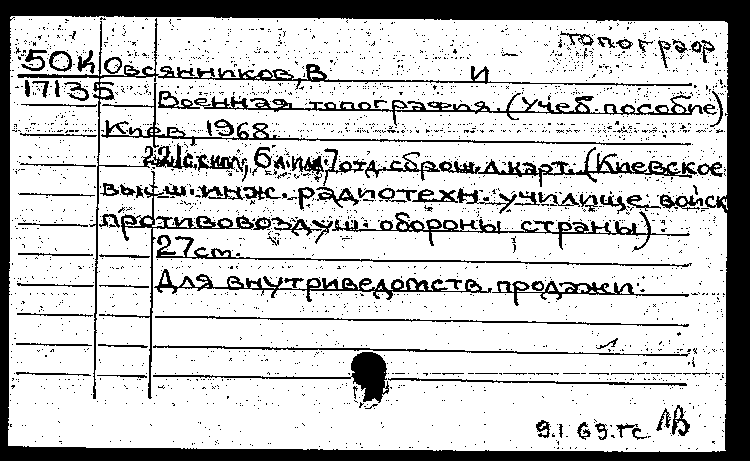 топограф
50К Овсянников, В И
17135 Военная топография. (Учеб. пособие)
Киев, 1968.
221 с. с илл.; 6 л. илл., 1 отд. сброш. л. карт. (Киевское
высш. инж. радиотехн. училище войск
противовоздуш. обороны страны).
27 см.
Для внутриведомств. продажи.
9.I 69. гс ЛВ